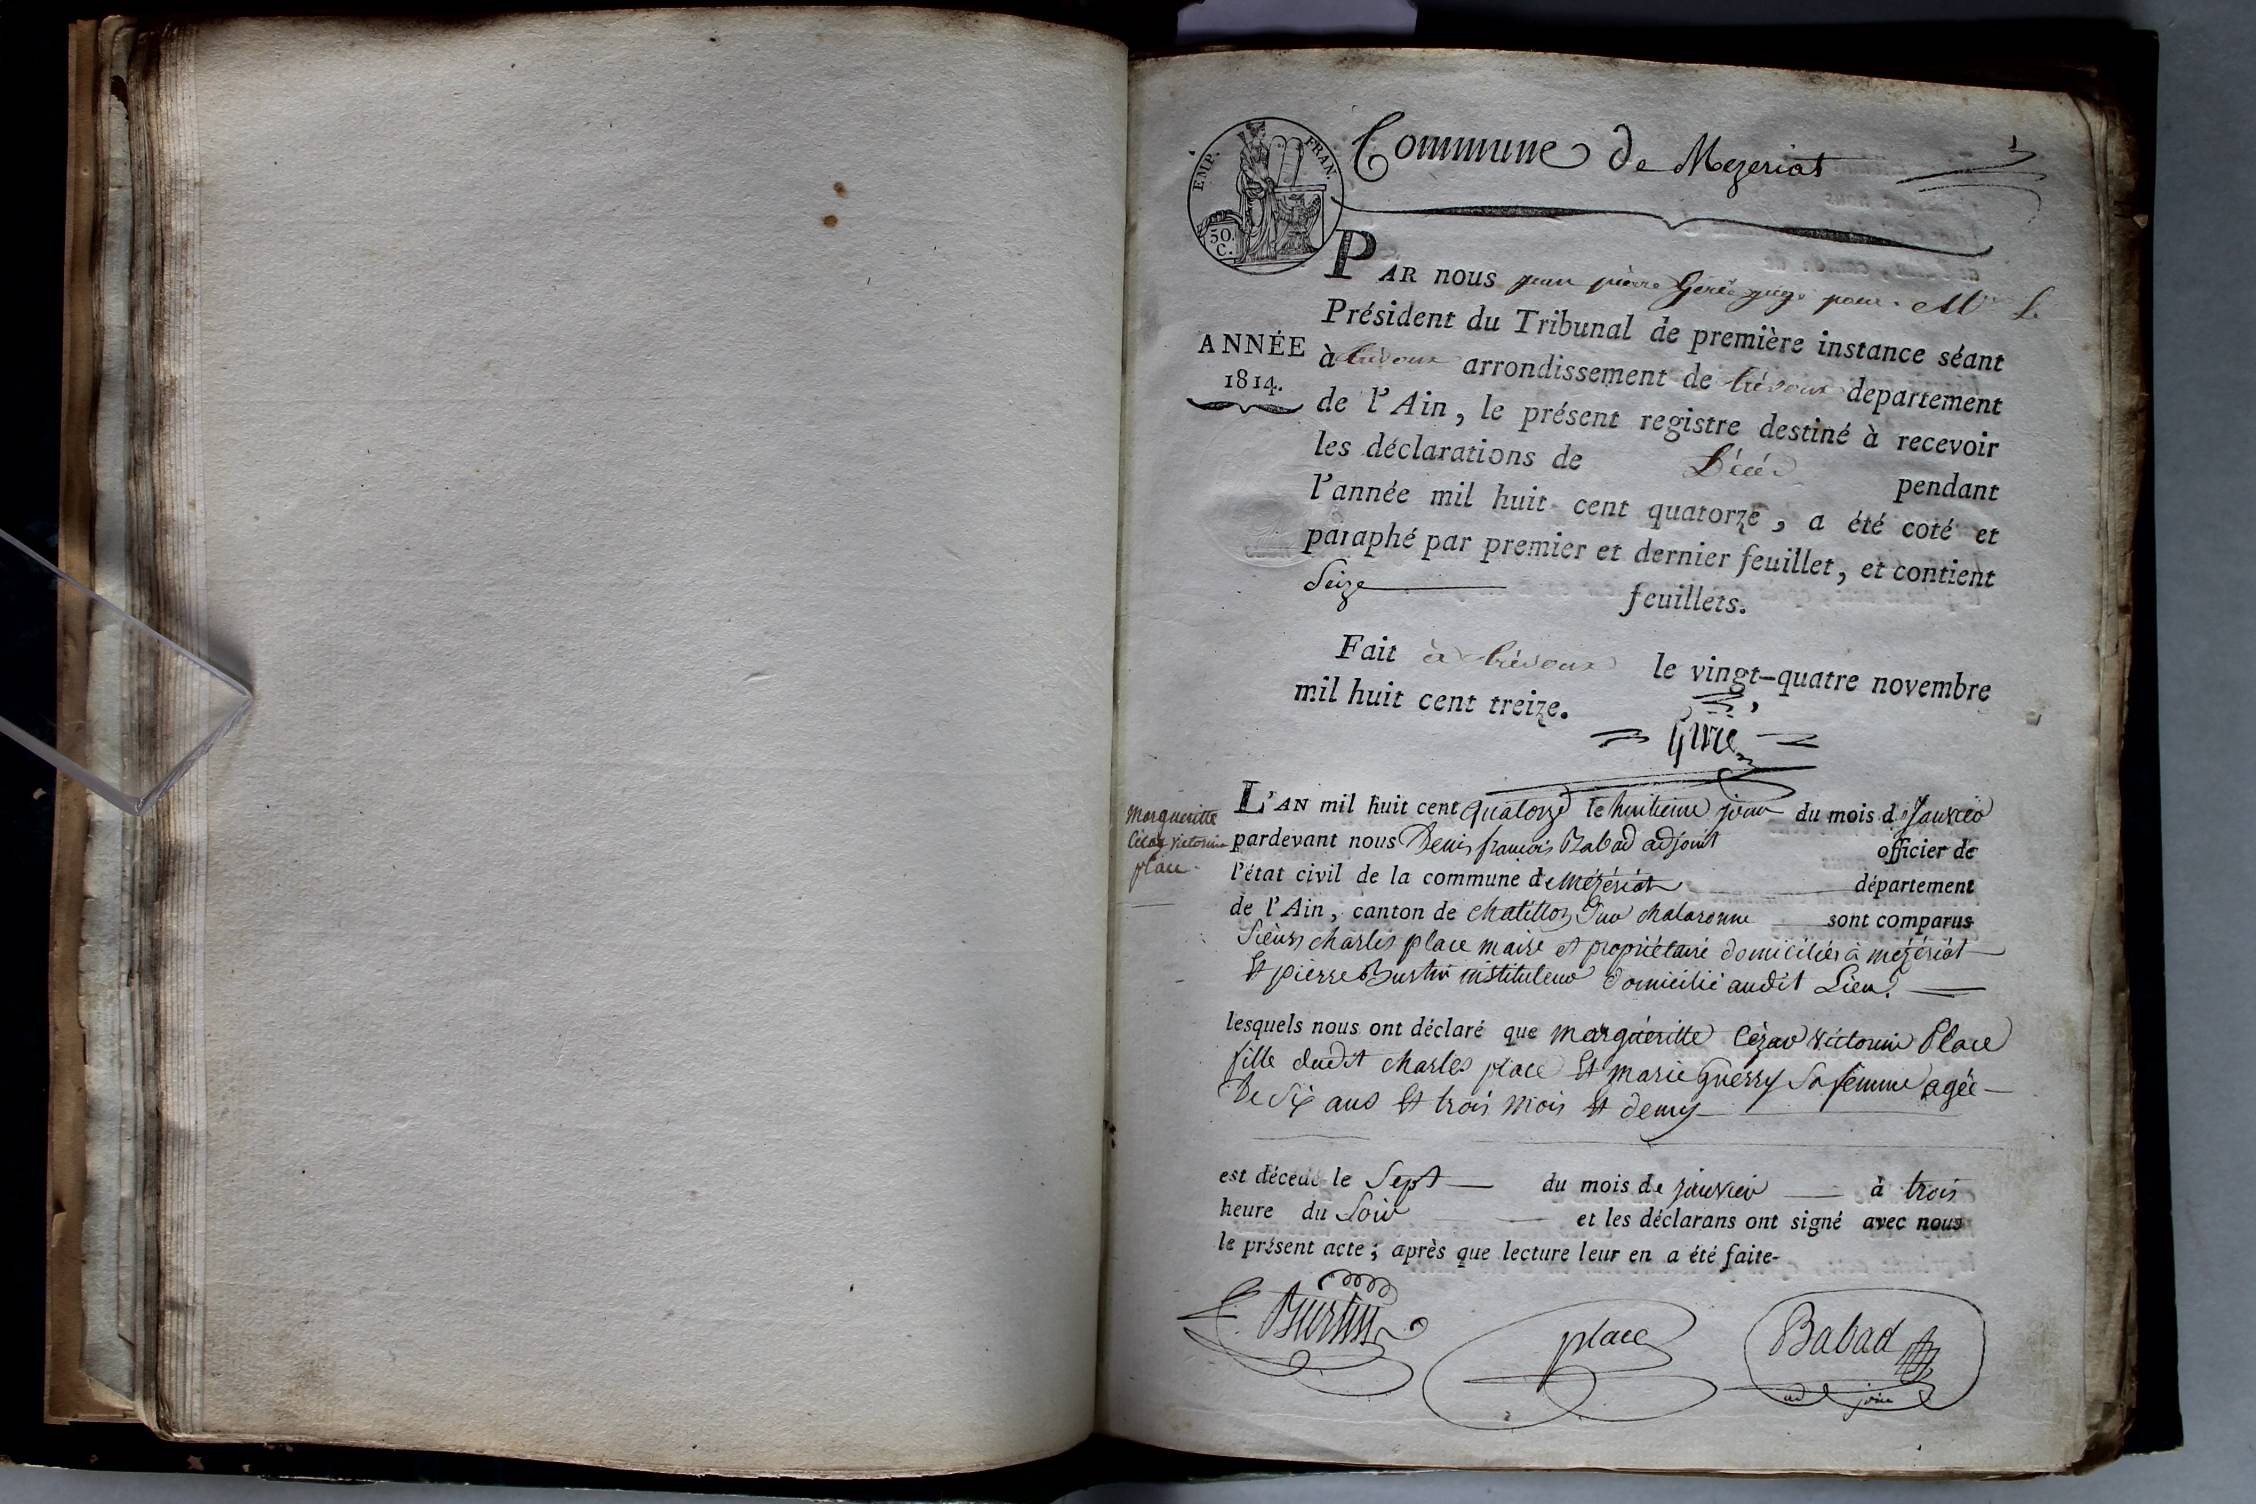 Commune de Mezeriat
1
EMP. FRAN.
50.
C.
PAR nous jean pierre Geré juge pour Mr L.
Président du Tribunal de première instance séant
ANNÉE
1814.
à trévoux arrondissement de trévoux departement
de l'Ain, le présent registre destiné à recevoir
les déclarations de Décès pendant
l'année mil huit cent quatorze, a été coté et
paraphé par premier et dernier feuillet, et contient
Seize feuillets.
Fait à trévoux le vingt-quatre novembre
mil huit cent treize.
Margueritte
Cézar victorine
place
L'AN mil huit cent quatorze le huitieme jour du mois de Janvier
pardevant nous Denis francois Babad adjoint officier de
l'état civil de la commune de Mézériat département
de l'Ain, canton de chatillon Sur chalaronne sont comparus
Sieurs charles place maire et propriétaire domiciliés à mézériat
Et pierre Burtin instituteur domicilié audit Lieu.
lesquels nous ont déclaré que Marguéritte Cézar victorine Place
fille dudit charles place Et marie Guerry Sa femme agée
De Six ans Et trois mois Et demy
est décédé le Sept du mois de janvier à trois
heure du Soir et les déclarans ont signé avec nous
le présent acte; après que lecture leur en a été faite-
Burtin place Babad
adjoin